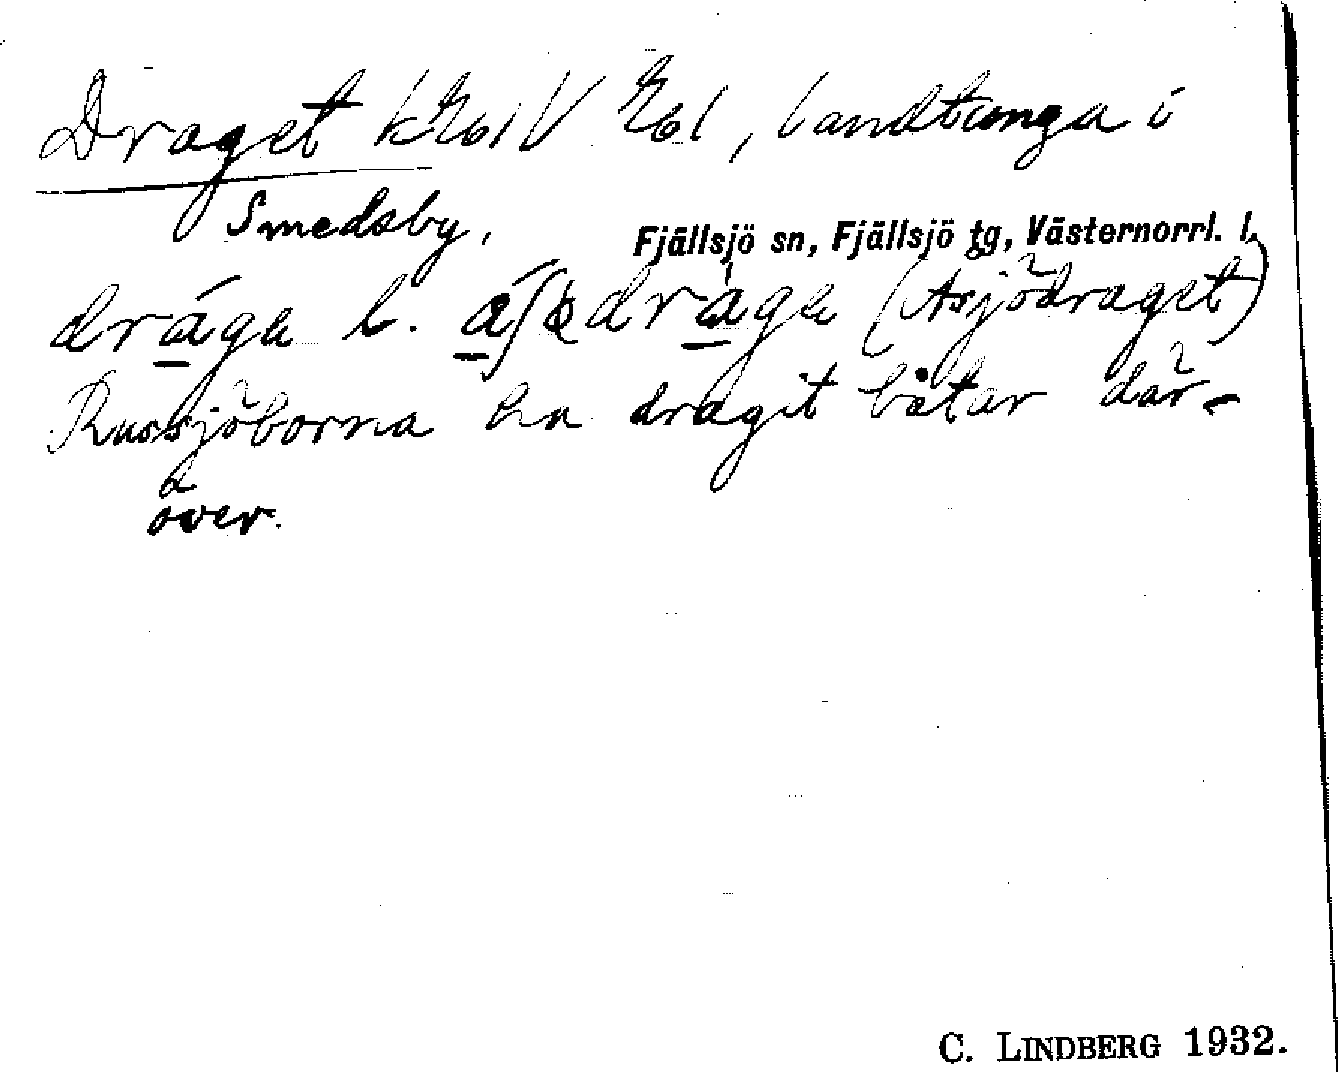 Draget landtunga i
Smedsby,
Fjällsjö sn, Fjällsjö tg, Västernorrl. l.
dråga l. (Asjödraget)
Russjöborna ha dragit båtar där-
över.
C. LINDBERG 1932.